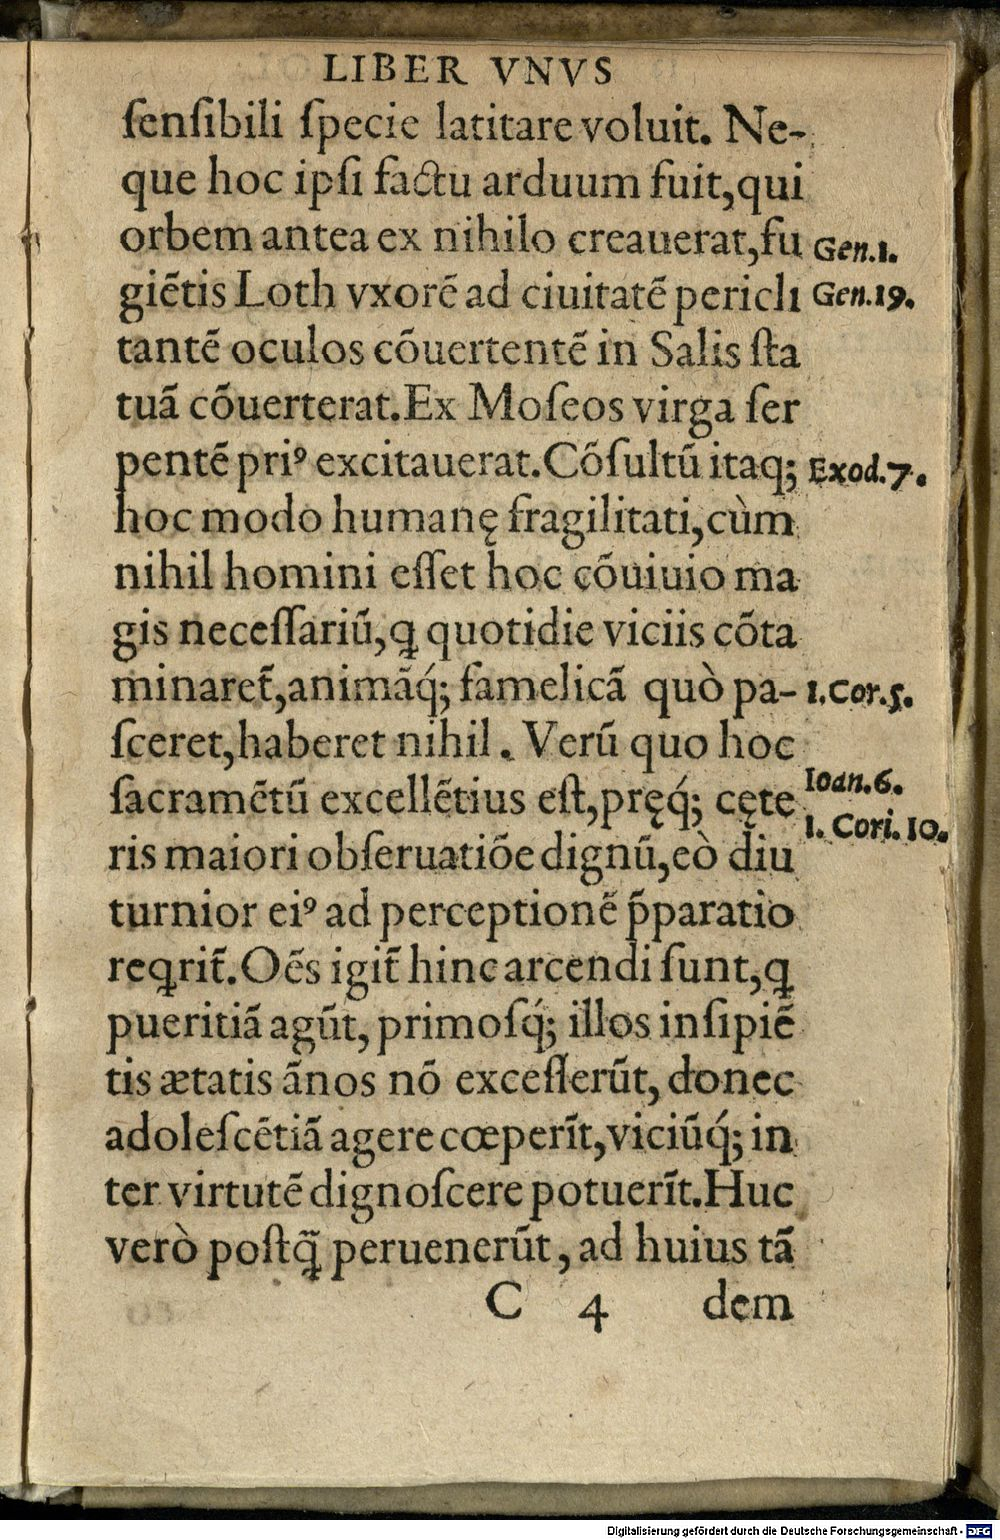 LIBER VNVS
ſenſibili ſpecie latitare voluit. Ne-
que hoc ipſi factu arduum fuit,qui
orbem antea ex nihilo creauerat,fu
Gen.1.
giētis Loth vxorē ad ciuitatē pericli
Gen.19.
tantē oculos cōuertentē in Salis ſta
tuā cōuerterat.Ex Moſeos virga ſer
pentē priꝰ excitauerat.Cōſultū itaq;
Exod.7.
hoc modo humanę fragilitati,cùm
nihil homini eſſet hoc cōuiuio ma
gis neceſſariū,ꝗ quotidie viciis cōta
minaret̄,animāq́; famelicā quò pa-
1.Cor.5.
ſceret,haberet nihil. Verū quo hoc
ſacramētū excellētius eſt,pręq́; cęte
Ioan.6.
1. Cori.10.
ris maiori obſeruatiōe dignū,eò diu
turnior eiꝰ ad perceptionē p̄paratio
reꝗrit̄.Oēs igit̄ hinc arcendi ſunt,ꝗ
pueritiā agūt, primoſq́; illos inſipiē
tis ætatis ānos nō exceſſerūt, donec
adoleſcētiā agere cœperīt,viciūq́; in
ter virtutē dignoſcere potuerīt.Huc
verò poſtꝗ̄ peruenerūt, ad huius tā
C 4 dem
Digitalisierung gefördert durch die Deutsche Forschungsgemeinschaft - DFG